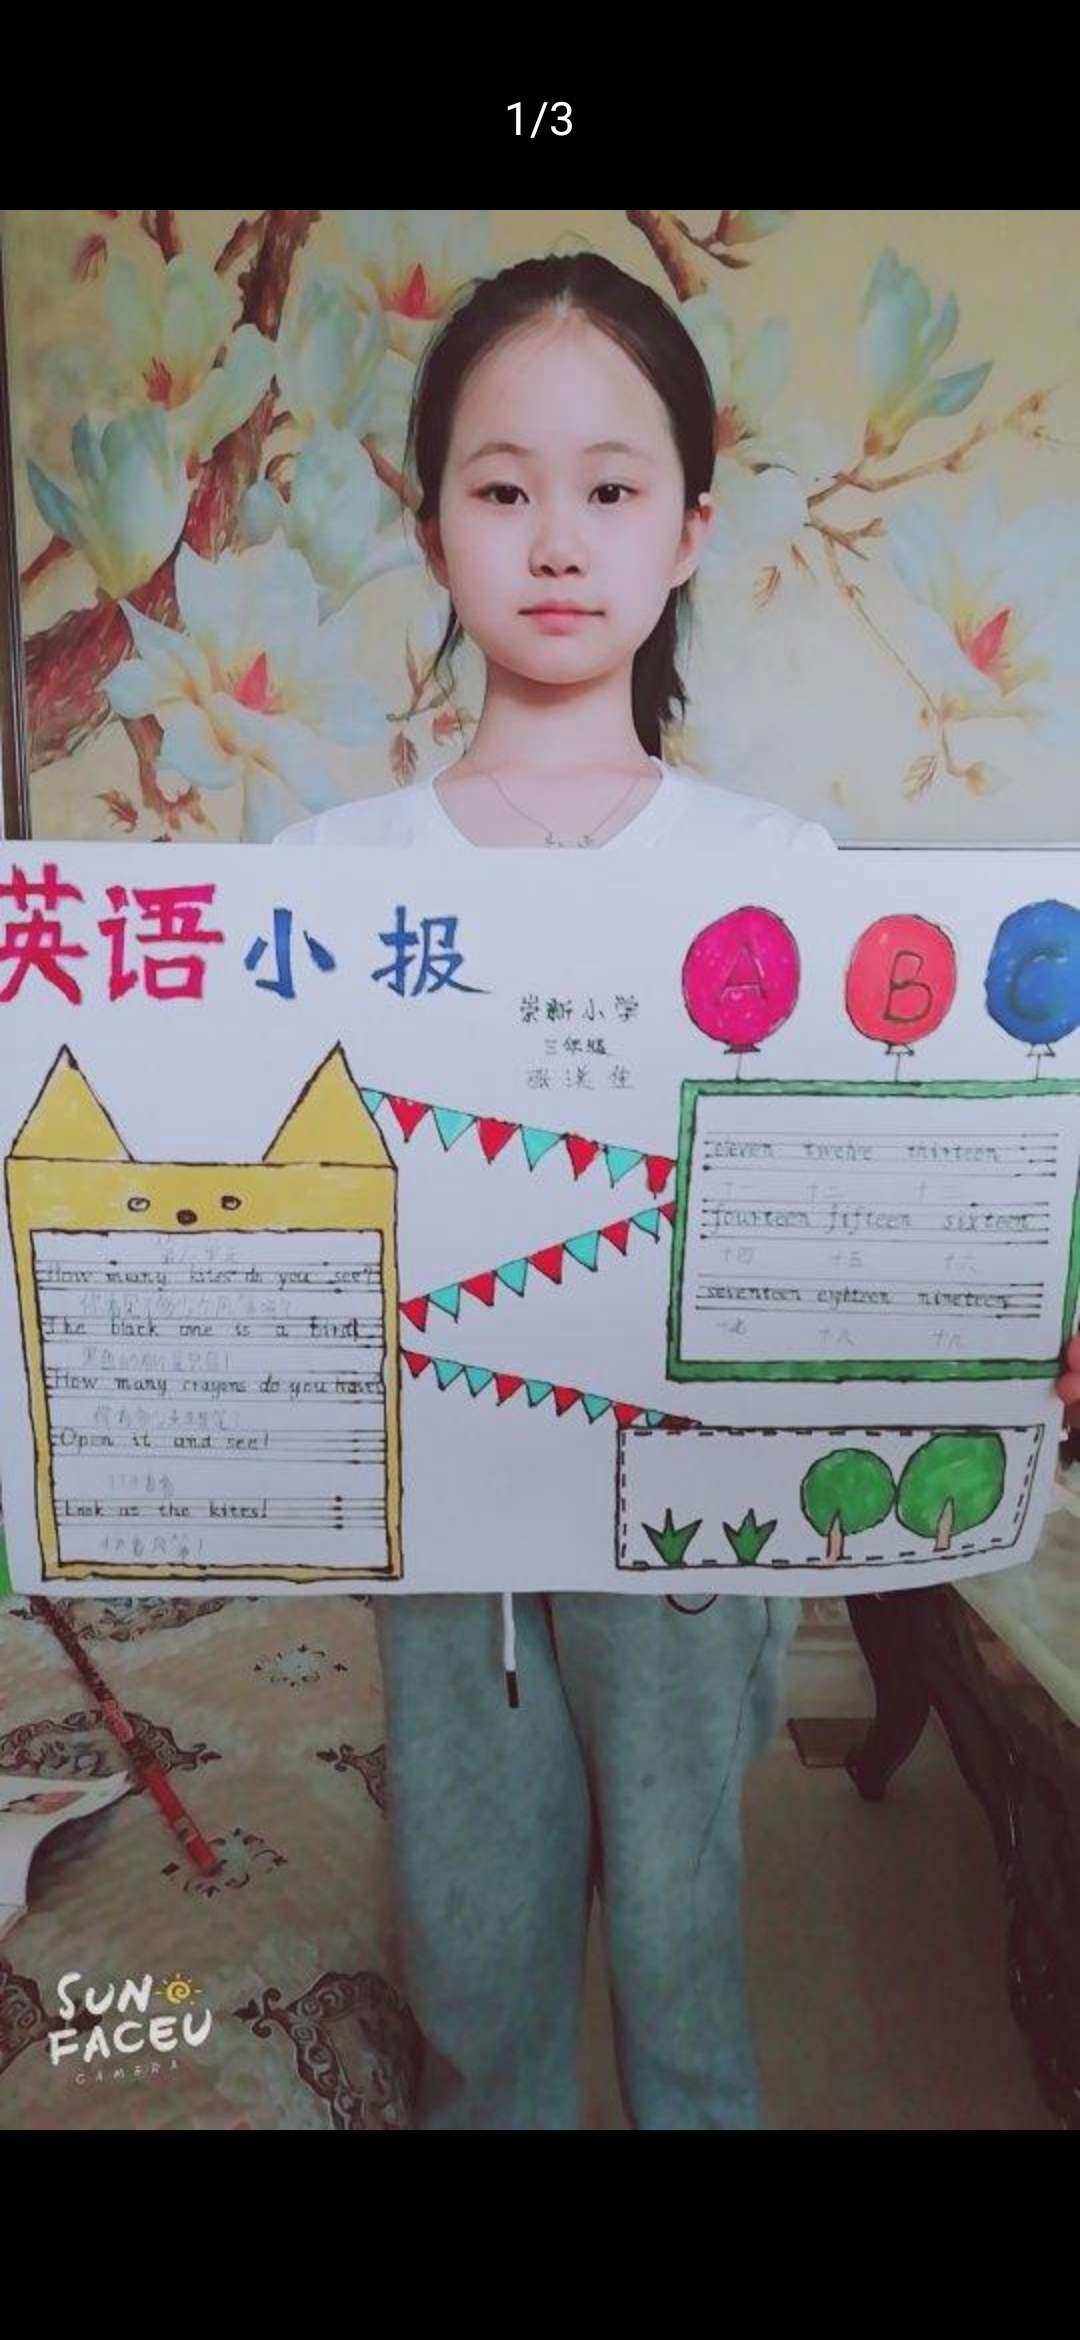 1/3
英语小报
崇新小学
三年级
A B C
eleven twelve thirteen
十一 十二 十三
fourteen fifteen sixteen
十四 十五 十六
seventeen eighteen nineteen
十七 十八 十九
How many kites do you see?
The black one is a bird!
How many crayons do you have?
Open it and see!
打开看看
Look at the kites!
快看风筝!
SUN
FACEU
CAMERA